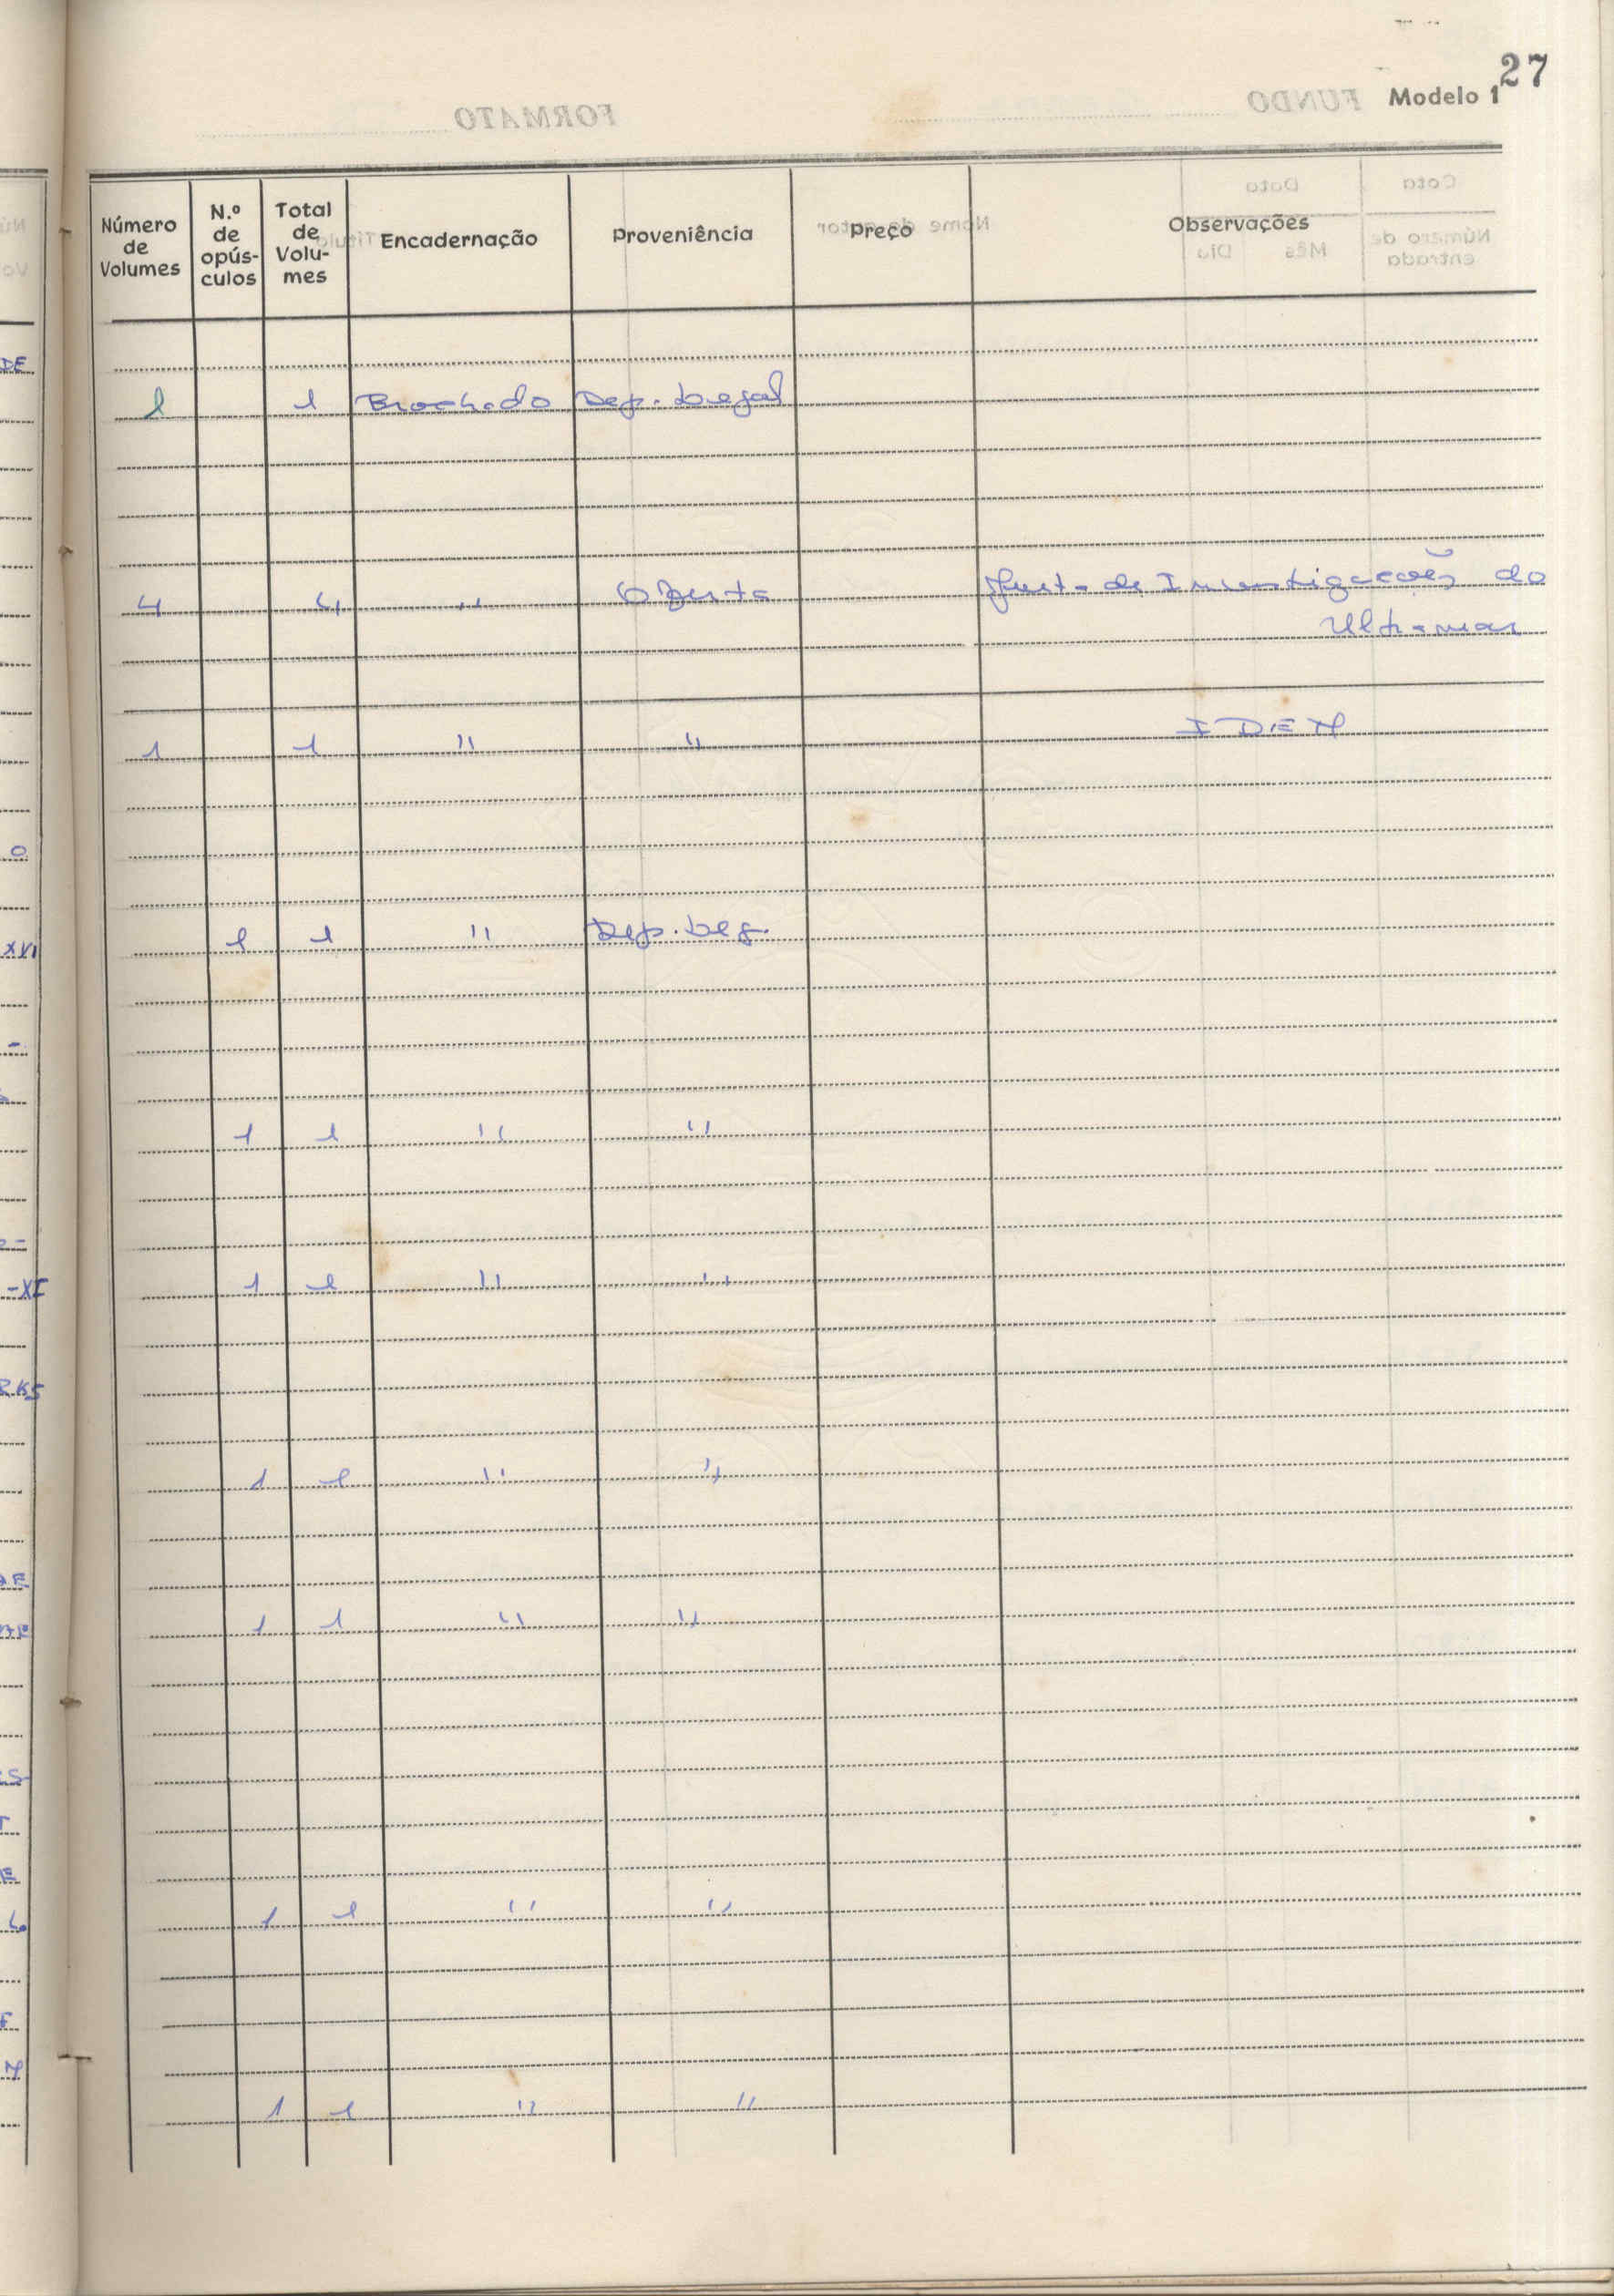 27
Modelo 1
Número de Volumes N.º de opús-culos Total de Volu-mes Encadernação Proveniência Preço Observações
1 1 Brochado Dep. Legal
4 4 " Oferta Junta de Investigações do
Ultramar
1 1 " " IDEM
1 1 " Dep. Leg.
1 1 " "
1 1 " "
1 1 " "
1 1 " "
1 1 " "
1 1 " "